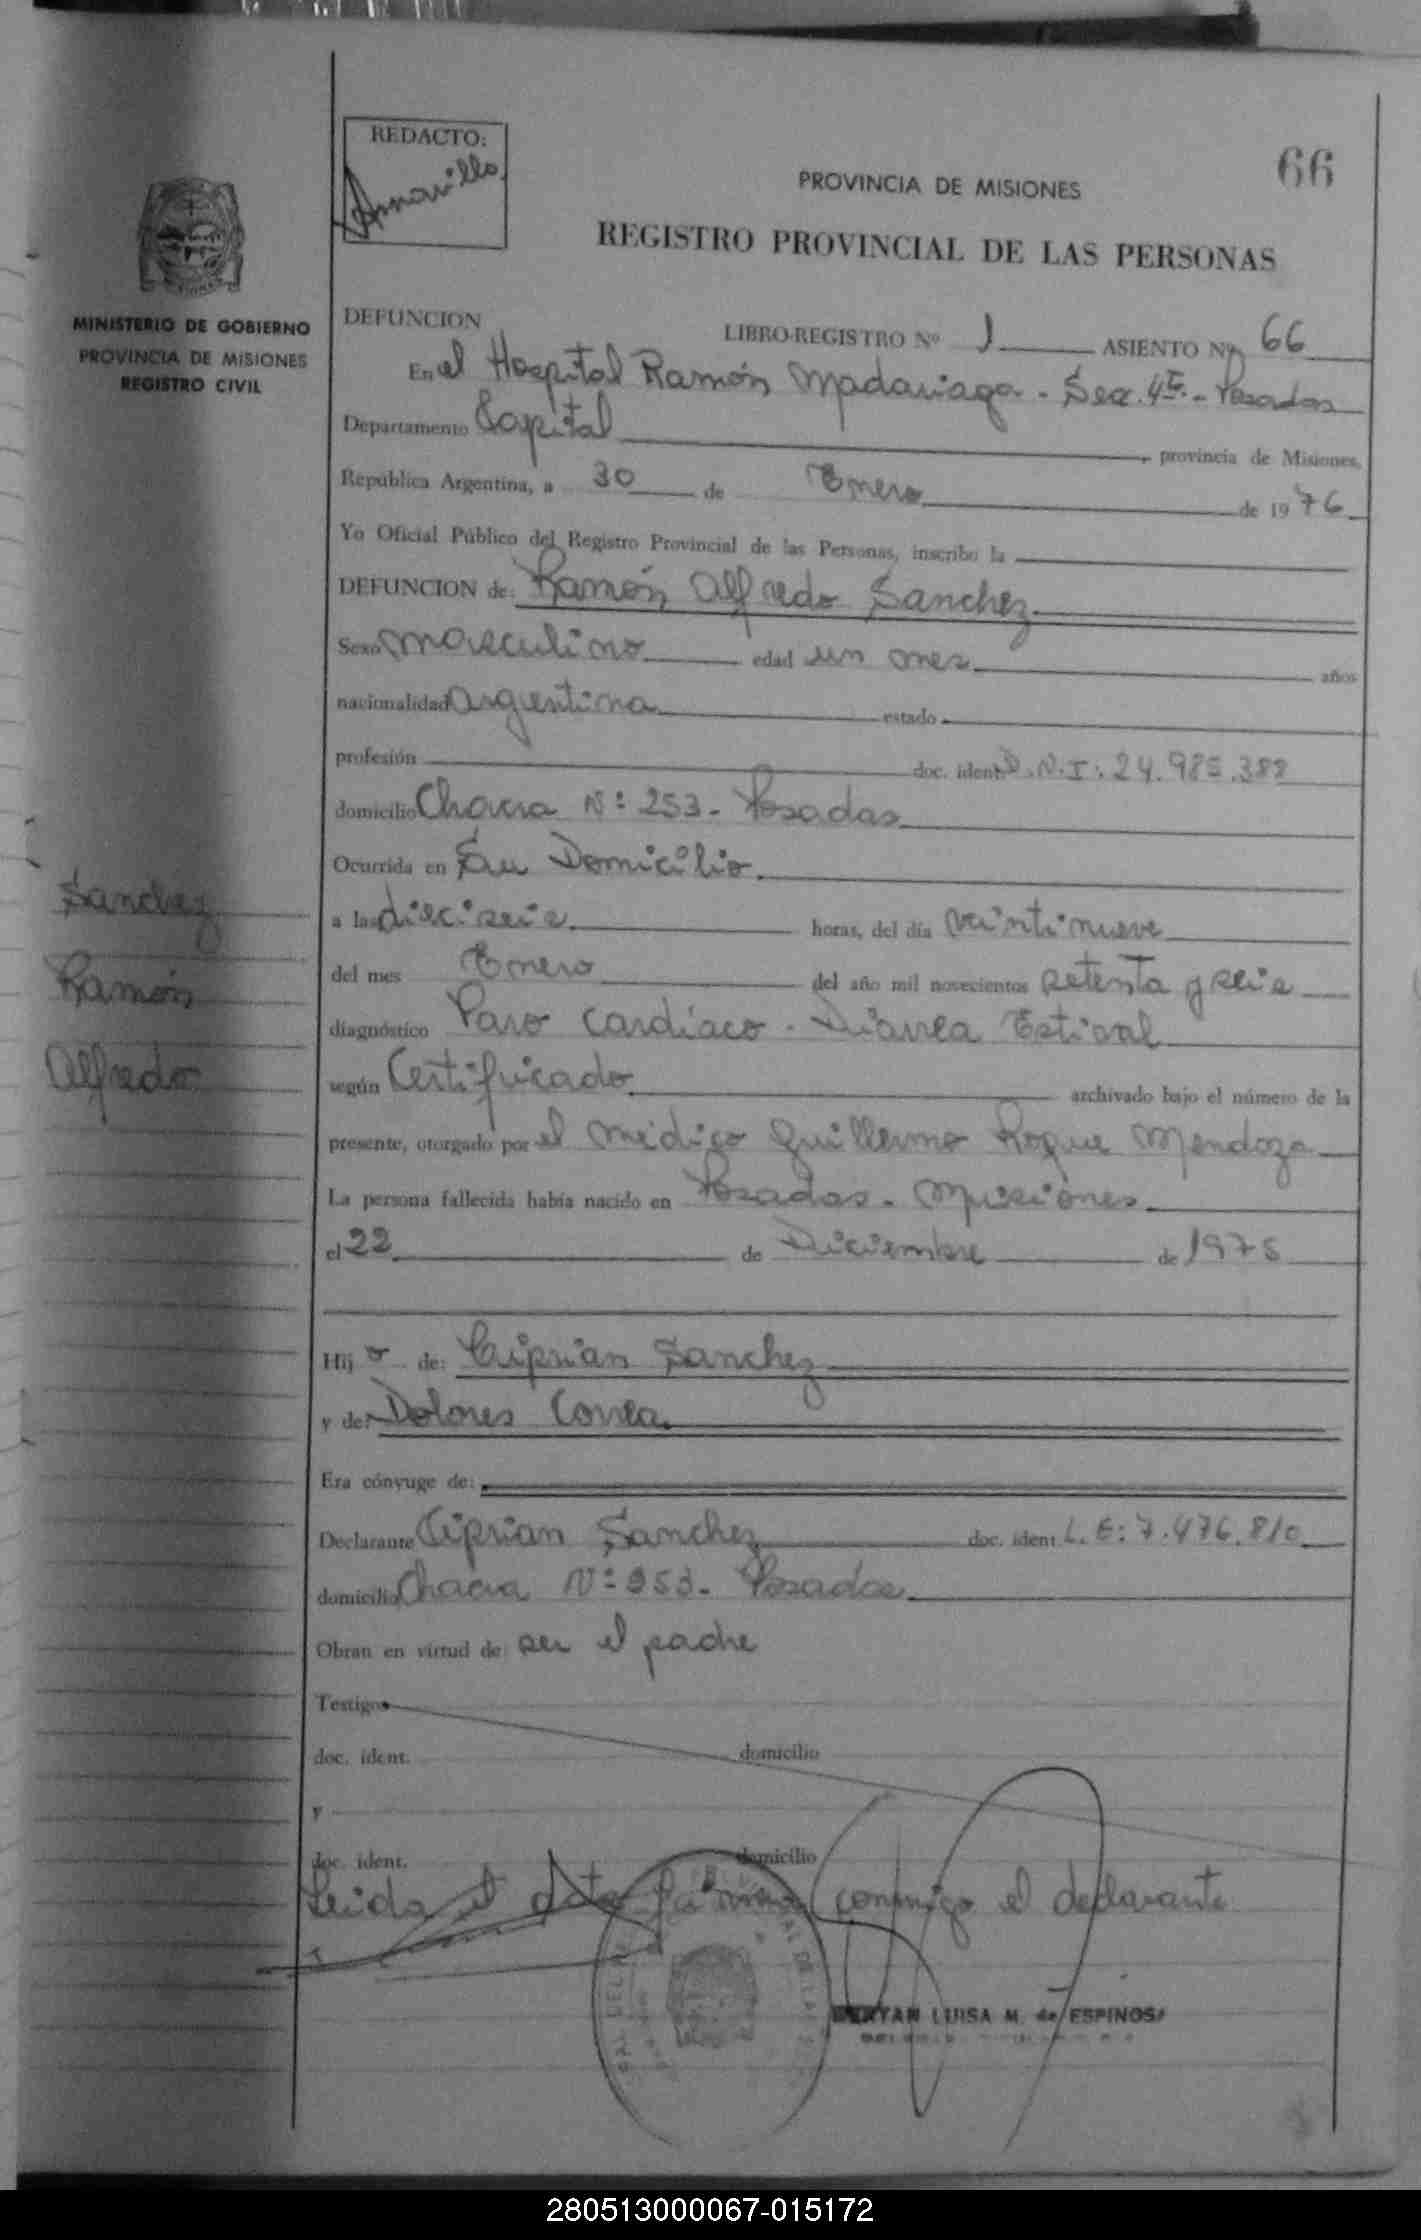 REDACTO:
Amarillo
66
PROVINCIA DE MISIONES
REGISTRO PROVINCIAL DE LAS PERSONAS
MINISTERIO DE GOBIERNO
PROVINCIA DE MISIONES
REGISTRO CIVIL
DEFUNCION
LIBRO-REGISTRO Nº 1 ASIENTO Nº 66
En el Hospital Ramón Madariaga - Sec. 4ª - Posadas
Departamento Capital, provincia de Misiones,
República Argentina, a 30 de Enero de 1976
Yo Oficial Público del Registro Provincial de las Personas, inscribo la
DEFUNCION de: Ramón Alfredo Sanchez
Sexo masculino edad un mes años
nacionalidad argentina estado
profesión doc. ident. D.N.I: 24.985.388
domicilio Chacra Nº 253 - Posadas
Ocurrida en Su Domicilio.
a las dieciseis horas, del día veintinueve
del mes Enero del año mil novecientos setenta y seis
diagnóstico Paro Cardíaco - Diarrea Estival
según Certificado archivado bajo el número de la
presente, otorgado por el médico Guillermo Roque Mendoza
La persona fallecida había nacido en Posadas - Misiones
el 22 de Diciembre de 1975
Hijo de: Ciprian Sanchez
y de: Dolores Correa
Era cónyuge de:
Declarante Ciprian Sanchez doc. ident. L.E: 7.476.810
domicilio Chacra Nº 253 - Posadas
Obran en virtud de ser el padre
Testigos
doc. ident. domicilio
y
doc. ident. domicilio
Leida el acta firman conmigo el declarante
LUISA M. de ESPINOSA
Sanchez
Ramón
Alfredo
280513000067-015172